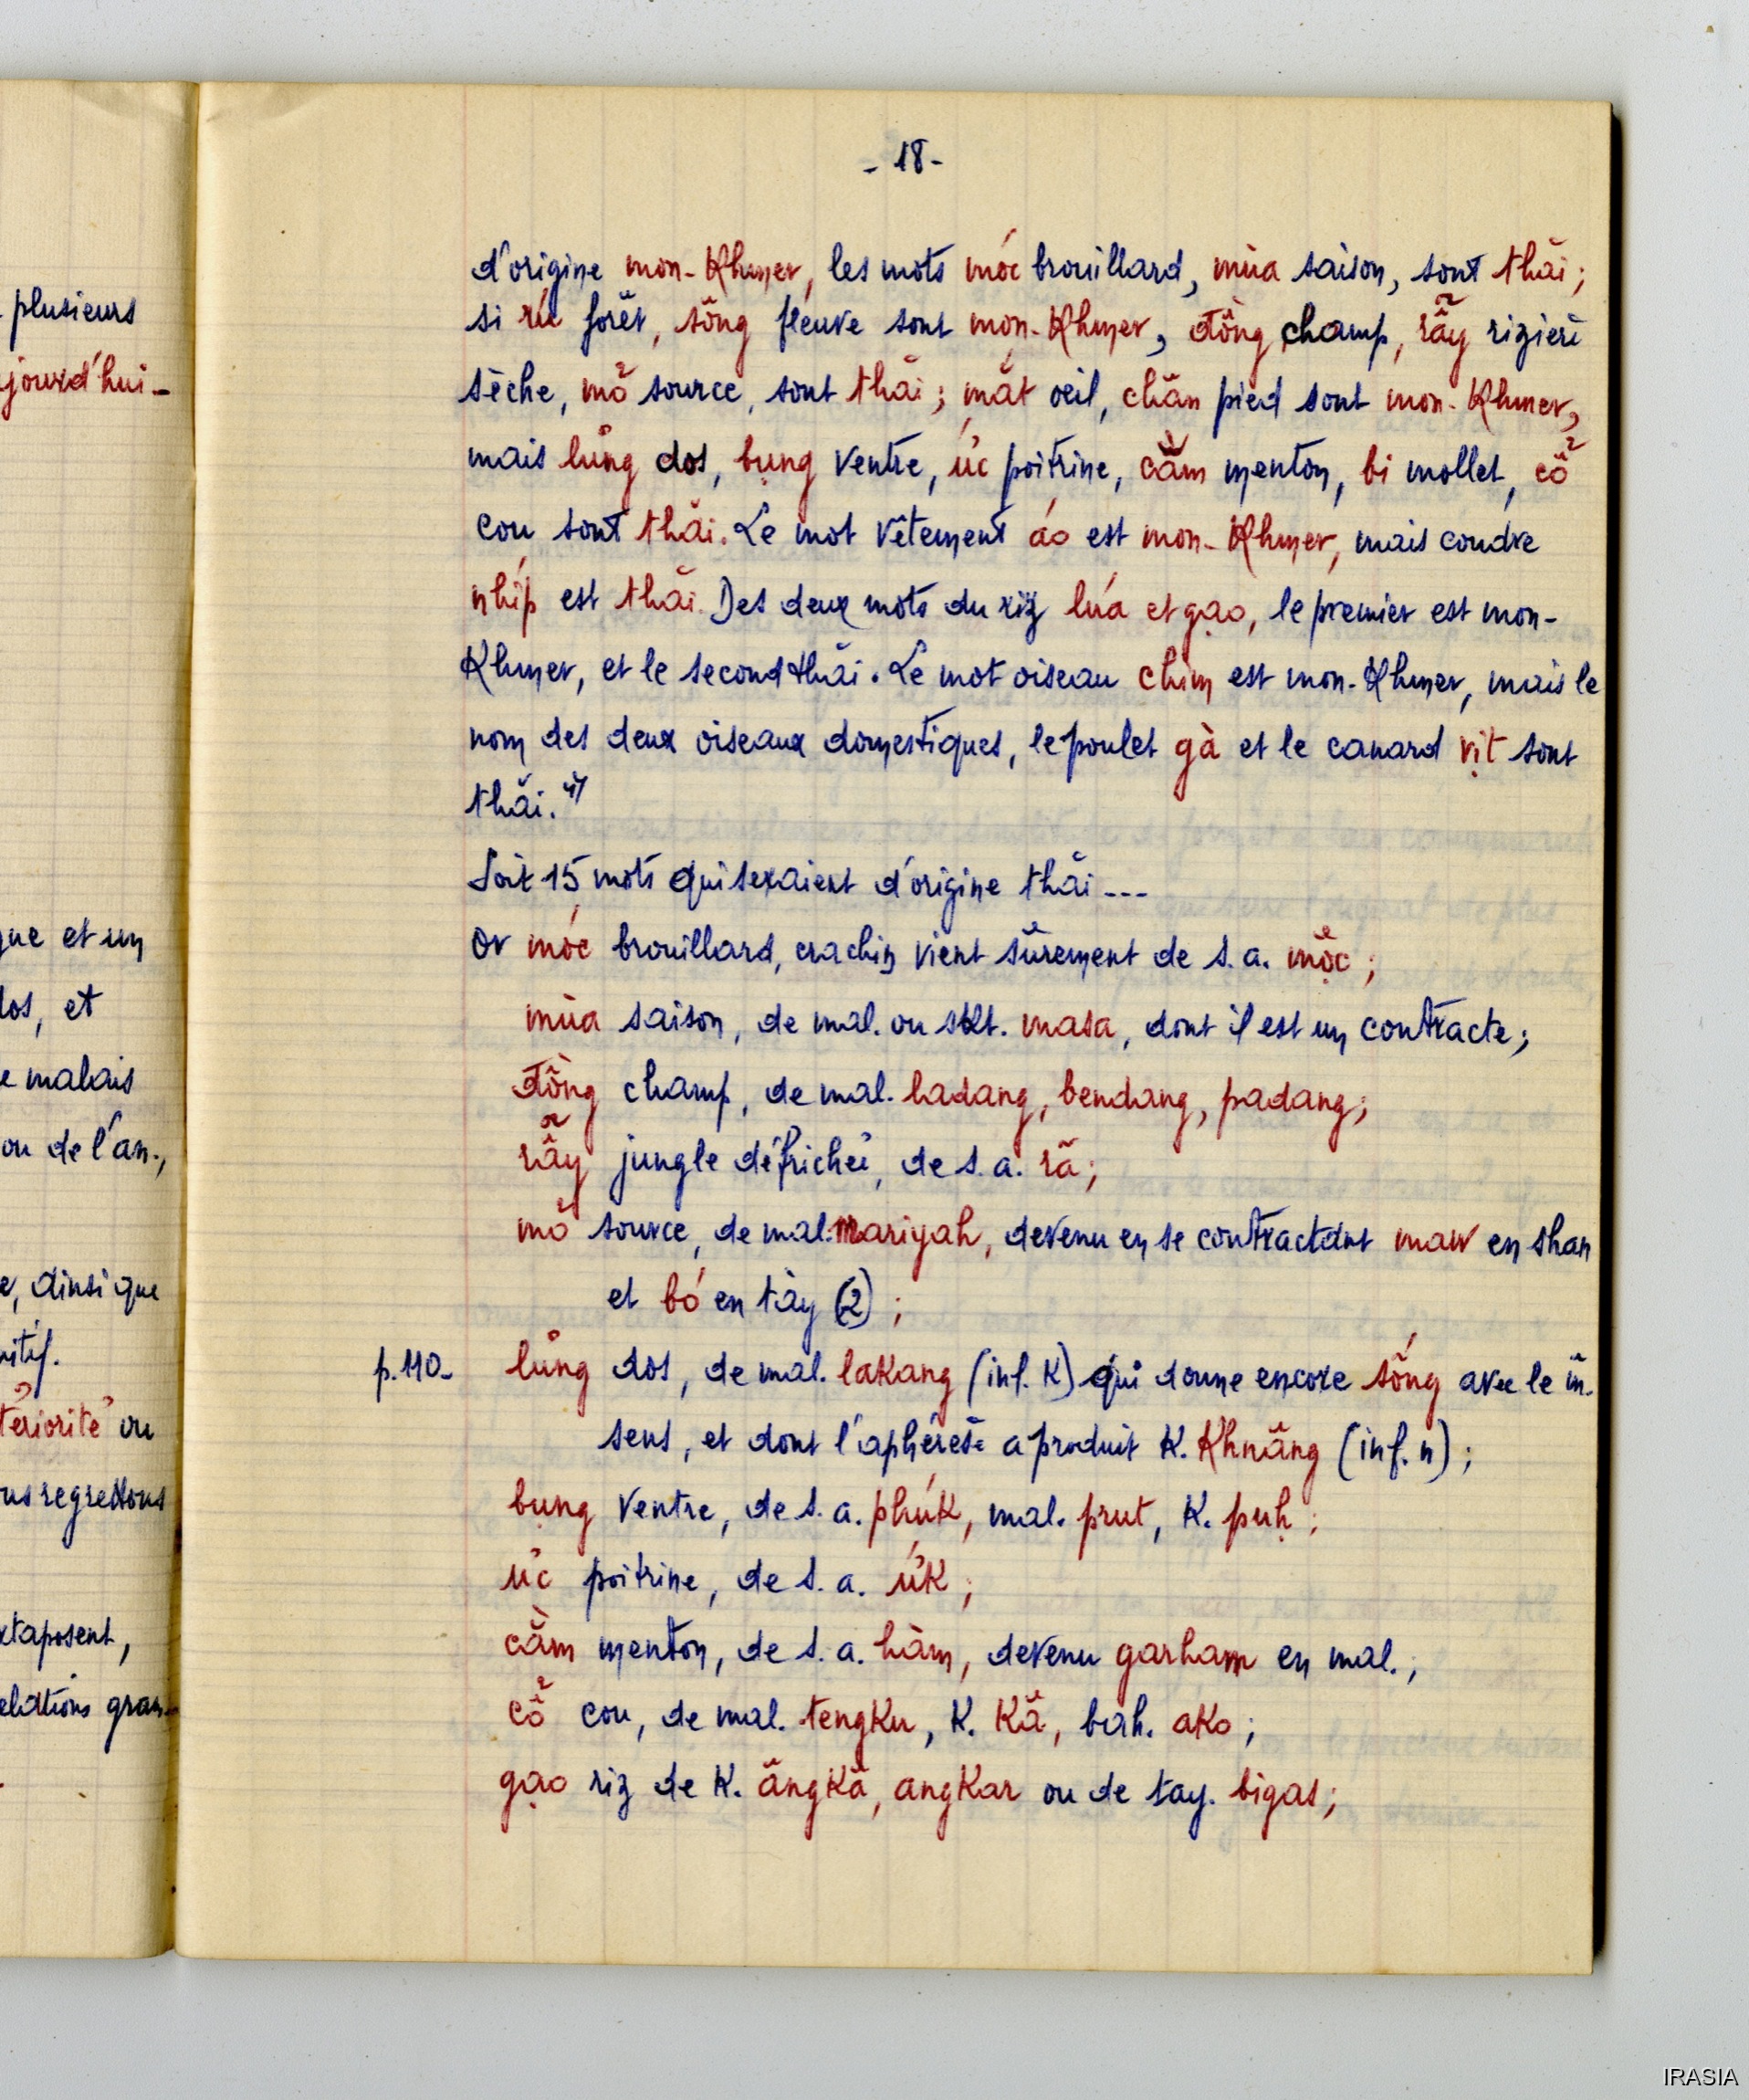 plusieurs
jourd'hui-
que et un
dos, et
e malais
ou de l'an.,
e, ainsi que
nitif.
tériorité" ou
ous regrettons
xtaposent,
elations gram-
- 18 -
d'origine mon-Khmer, les mots móc brouillard, mùa saison, sont thăi;
si rú forêt, sông fleuve sont mon-Khmer, đồng champ, rẫy rizière
sèche, mỏ source, sont thăi; mắt oeil, chân pied sont mon-Khmer,
mais lưng dos, bụng ventre, ức poitrine, cằm menton, bi mollet, cổ
cou sont thăi. Le mot vêtement áo est mon-Khmer, mais coudre
nhíp est thăi. Des deux mots du riz lúa et gạo, le premier est mon-
Khmer, et le second thăi. Le mot oiseau chim est mon-Khmer, mais le
nom des deux oiseaux domestiques, le poulet gà et le canard vịt sont
thăi.
Soit 15 mots qui seraient d'origine thăi---
Or móc brouillard, crachin vient sûrement de s.a. mộc;
mùa saison, de mal. ou skt. masa, dont il est un contracte;
đồng champ, de mal. ladang, bendang, padang;
rẫy jungle défrichée, de s.a. rã;
mỏ source, de mal. mariyah, devenu en se contractant maw en shan
et bó en tày (2);
p.110- lưng dos, de mal. lakang (inf. K) qui donne encore sống avec le m.
sens, et dont l'aphérèse a produit K. Khnăng (inf. n);
bụng ventre, de s.a. phúk, mal. prut, K. puḥ;
ức poitrine, de s.a. ứk;
cằm menton, de s.a. hàm, devenu garham en mal.;
cổ cou, de mal. tengku, K. Kă, bah. ako;
gạo riz de K. ăngkă, angkar ou de tay. bigas;
IRASIA